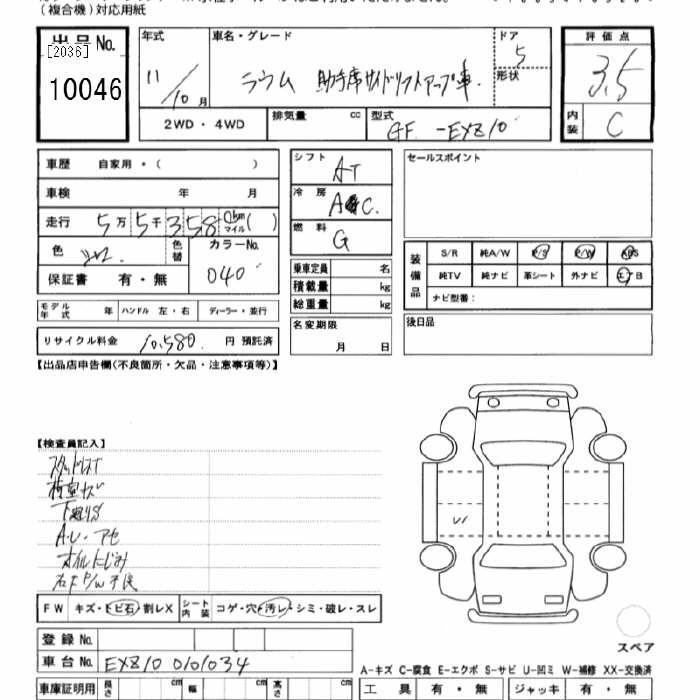 (複合機)対応用紙
出品No.
[2036]
10046
年式 11/10月
車名・グレード ラウム 助手席サイドリフトアップ車
ドア 5
形状
2WD・4WD 排気量 cc 型式 GF-EXZ10
評価点 3.5
内装 C
車歴 自家用・( )
車検 年 月
走行 5万5千358 km マイル ( )
色 色替 カラーNo. 040
保証書 有・無
シフト AT
冷房 AC
燃料 G
乗車定員 名
積載量 kg
総重量 kg
名変期限 月 日
セールスポイント
装備品 S/R 純A/W P/S P/W ABS
純TV 純ナビ 革シート 外ナビ エアB
ナビ型番:
後日品
モデル年式 年 ハンドル 左・右 ディーラー・並行
リサイクル料金 10,580 円 預託済
【出品店申告欄(不良箇所・欠品・注意事項等)】
【検査員記入】
A・U・アセ
オイルにじみ
右F P/W不良
FW キズ・トビ石・割レX シート内装 コゲ・穴・汚レ・シミ・破レ・スレ
登録No.
車台No. EXZ10 0101034
車庫証明用 長さ cm 幅 cm 高さ cm
スペア
A-キズ C-腐食 E-エクボ S-サビ U-凹ミ W-補修 XX-交換済
工具 有・無 ジャッキ 有・無